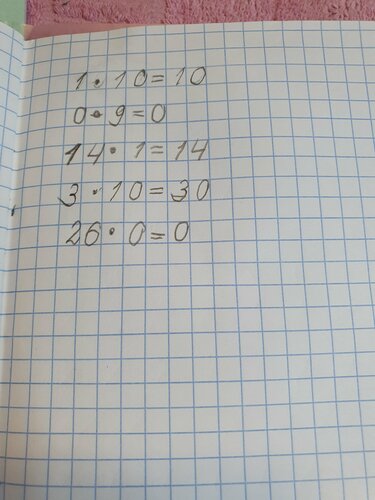 1·10=10
0·9=0
14·1=14
3·10=30
26·0=0